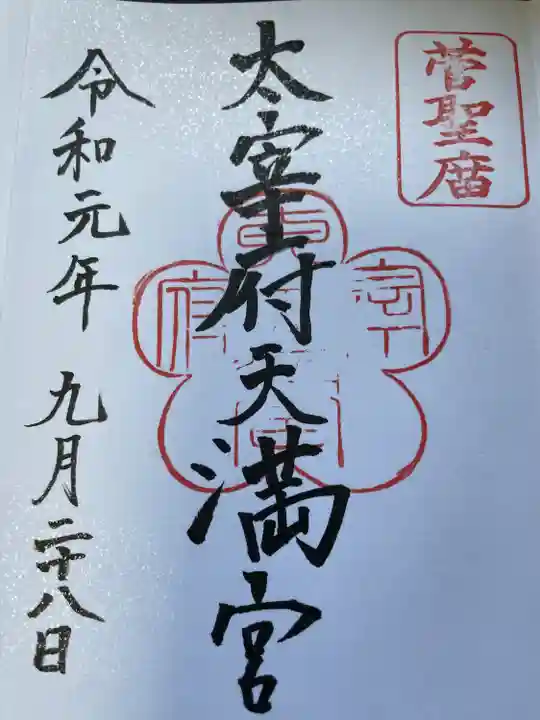 菅聖暦
太宰府天満宮
令和元年 九月二十八日